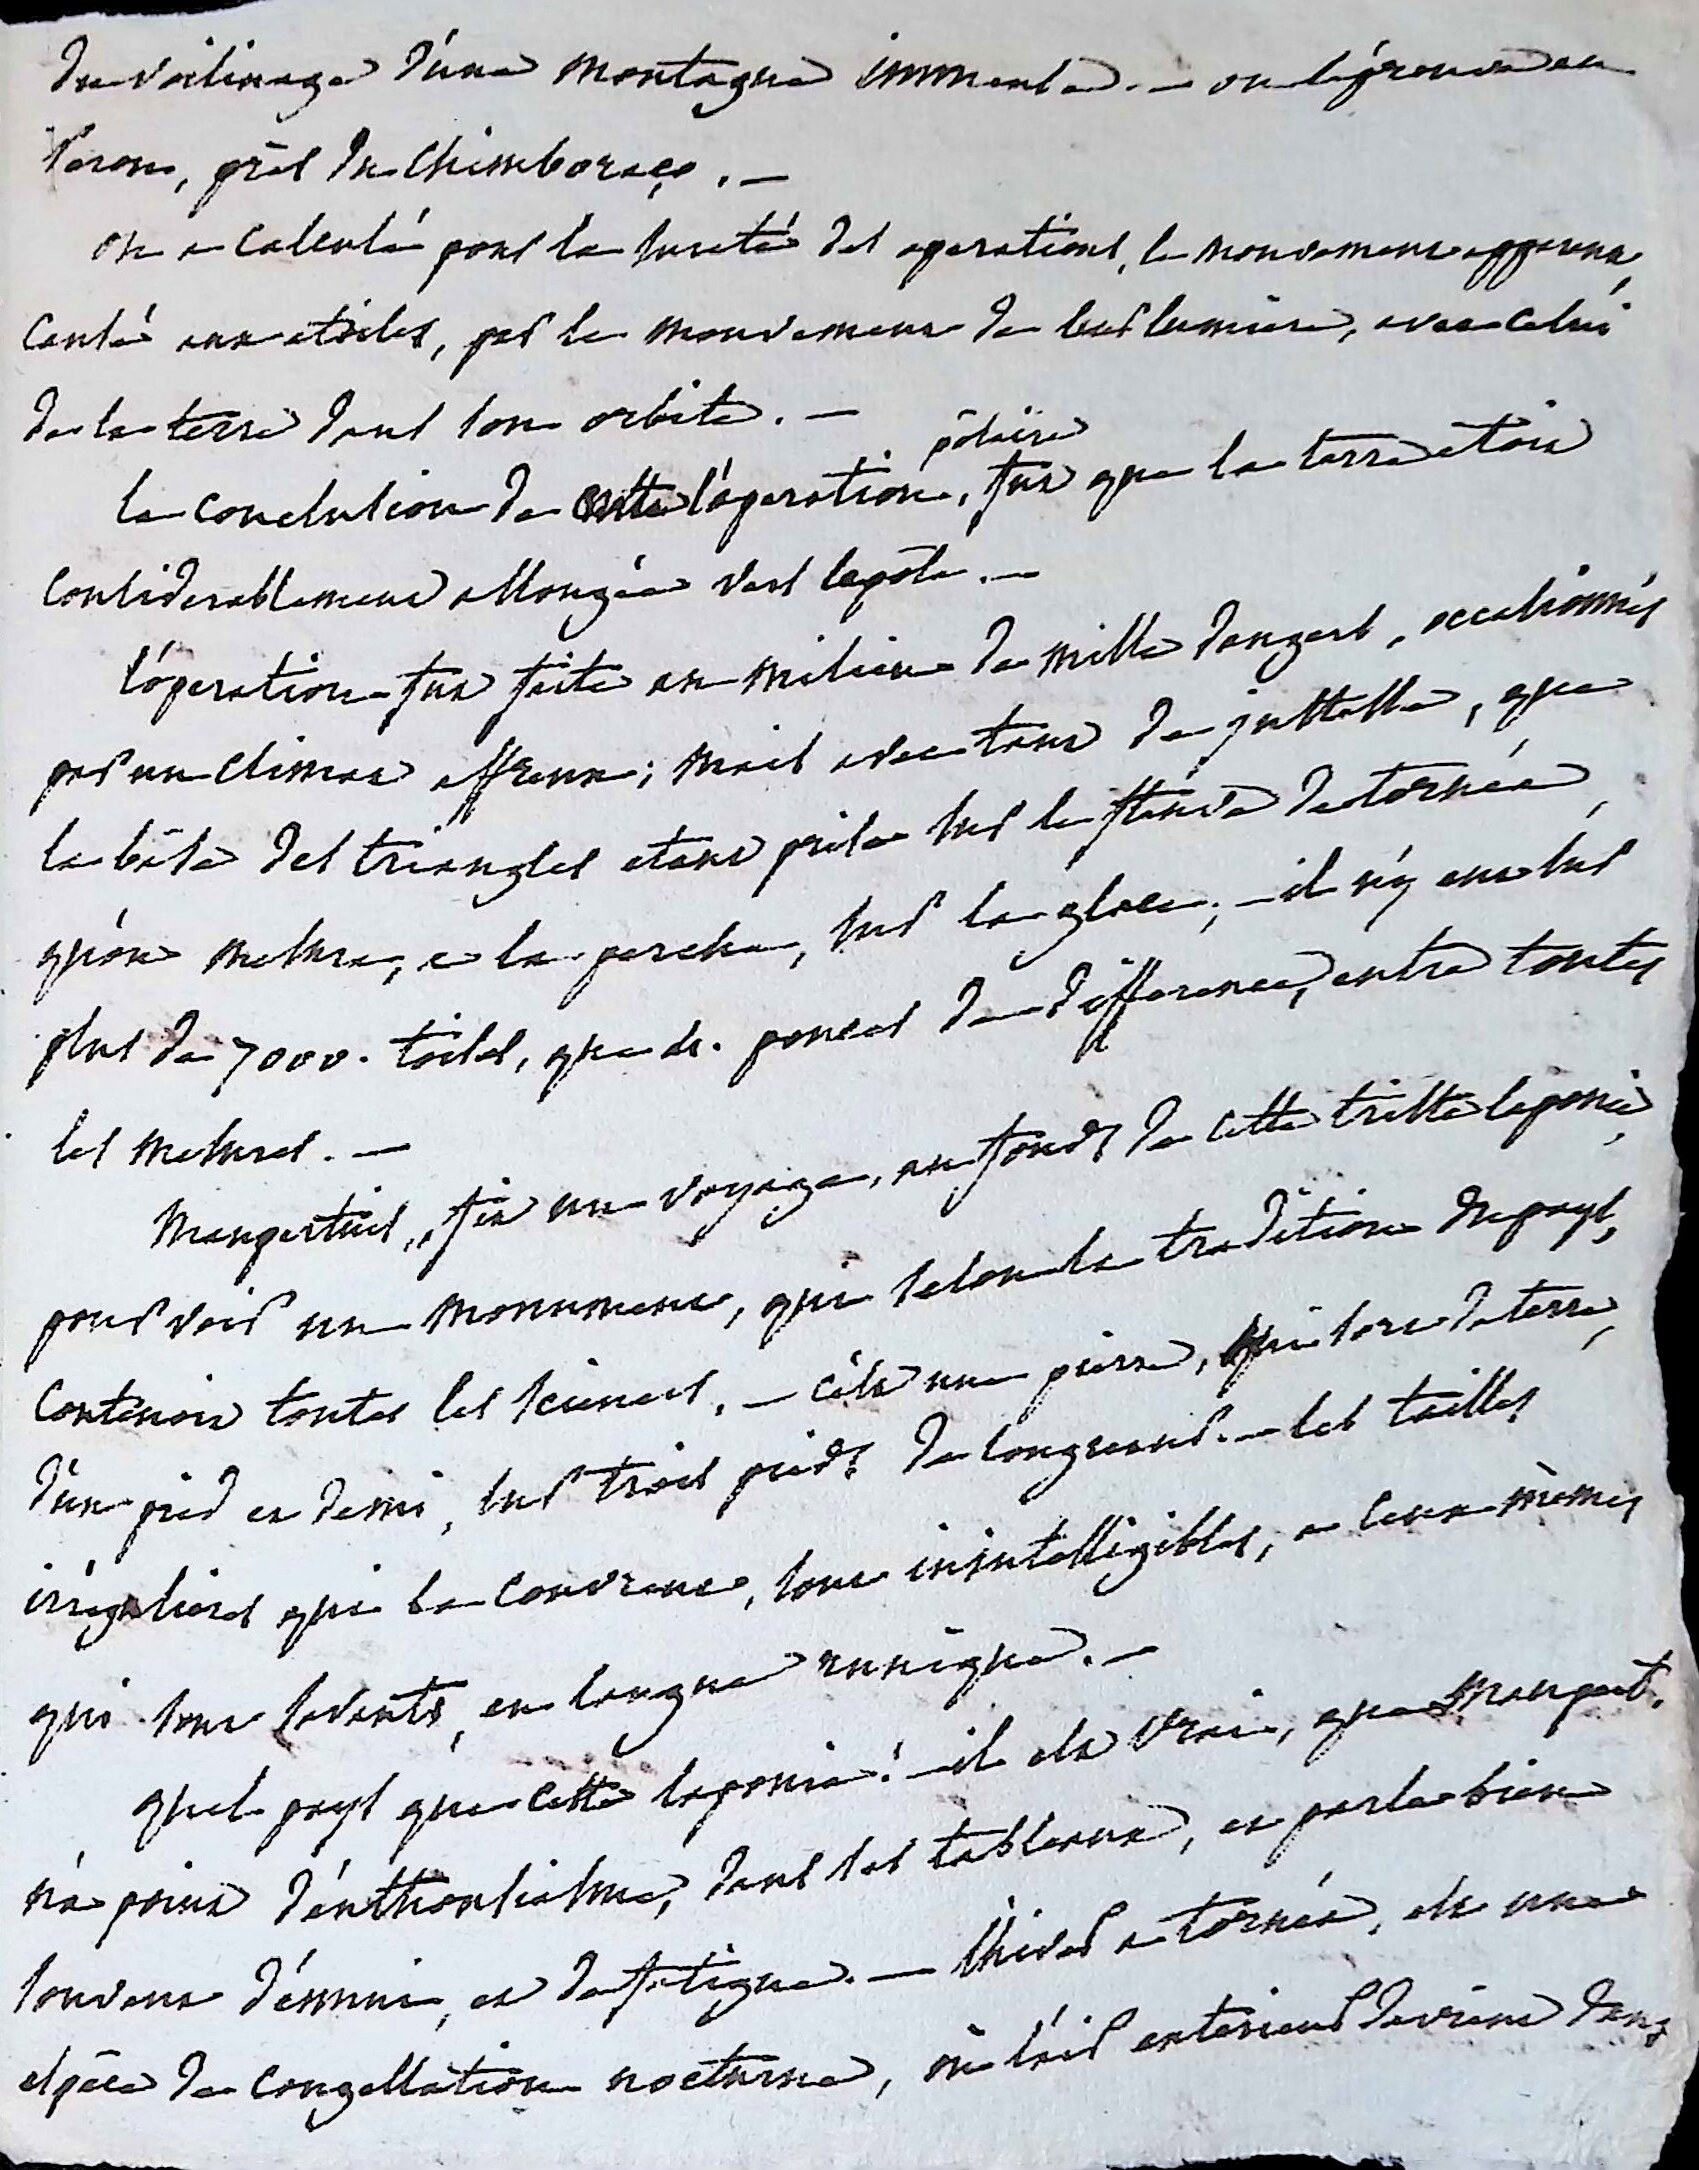 du voisinage d'une montagne immense. — on l'éprouva au
Perou, près du Chimboraço. —
on a calculé pour la sureté des operations, le mouvement apparent,
causé aux etoiles, par le mouvement de leur lumière, avec celui
de la terre dans son orbite. —
polaire
la conclusion de l'operation, fut que la terre etoit
considerablement allongée vers le pôle. —
l'óperation fut faite au milieu de mille dangers, occasionnés
par un climat affreux; mais avec tant de justesse, que
la bâse des triangles etant prise sur le fleuve de tornéa,
qu'on mesura, a la perche, sur la glace; — il n'y eut sur
plus de 7000. toises, que 4. pouces de difference, entre toutes
les mesures. —
Maupertuis, fit un voyage, au fonds de cette triste laponie,
pour voir un monument, qui selon la tradition du pays,
contenoit toutes les sciences. — c'est une pierre, qui sort de terre,
d'un pied et demi, sur trois pieds de longueur. — les tailles
irrégulieres qui la couvrent, sont inintelligibles, a ceux mèmes
qui sont savants, en langue runique. —
quel pays que cette laponie! — il est vrai, que Maupert.
n'a point d'enthousiasme, dans ses tableaux, et parle bien
souvent d'ennui, et de fatigue. — l'hiver a tornéa, est une
espèce de congellation nocturne, où l'air exterieur devient dans